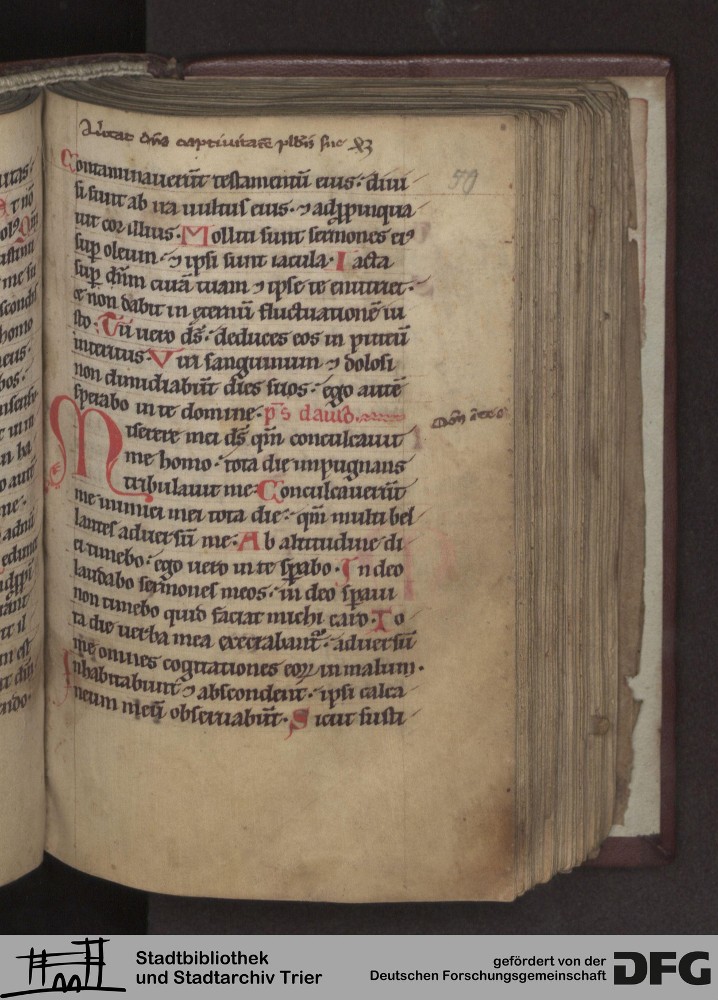 Auertat dns captiuitatē plbis sue
59
Contaminauerūt testamentū eius· diui
si sunt ab ira uultus eius· ⁊ adp̄pinqua
uit cor illius· Molliti sunt sermones ei⁹
sup oleum· ⁊ ipsi sunt iacula· Iacta
sup dn̄m curā tuam ⁊ ipse te enutriet·
et non dabit in eternū fluctuationē iu
sto· Tu uero ds̄· deduces eos in puteū
interitus· Viri sanguinum ⁊ dolosi
non dimidiabūt dies suos· ego autē
sperabo in te domine· p̄s dauid
Miserere mei ds̄ qm̄ conculcauit
me homo· tota die inpugnans
tribulauit me· Conculcauerūt
me inimici mei tota die· qm̄ multi bel
lantes aduersū me· Ab altitudine di
ei timebo· ego uero in te sp̄abo· In deo
laudabo sermones meos· in deo sp̄aui
non timebo quid faciat michi caro· To
ta die uerba mea execrabant᷑· aduersū
me omnes cogitationes eoꝝ in malum·
Inhabitabunt ⁊ abscondent· ipsi calca
neum meū obseruabūt· Sicut susti
Stadtbibliothek
und Stadtarchiv Trier
gefördert von der
Deutschen Forschungsgemeinschaft
DFG